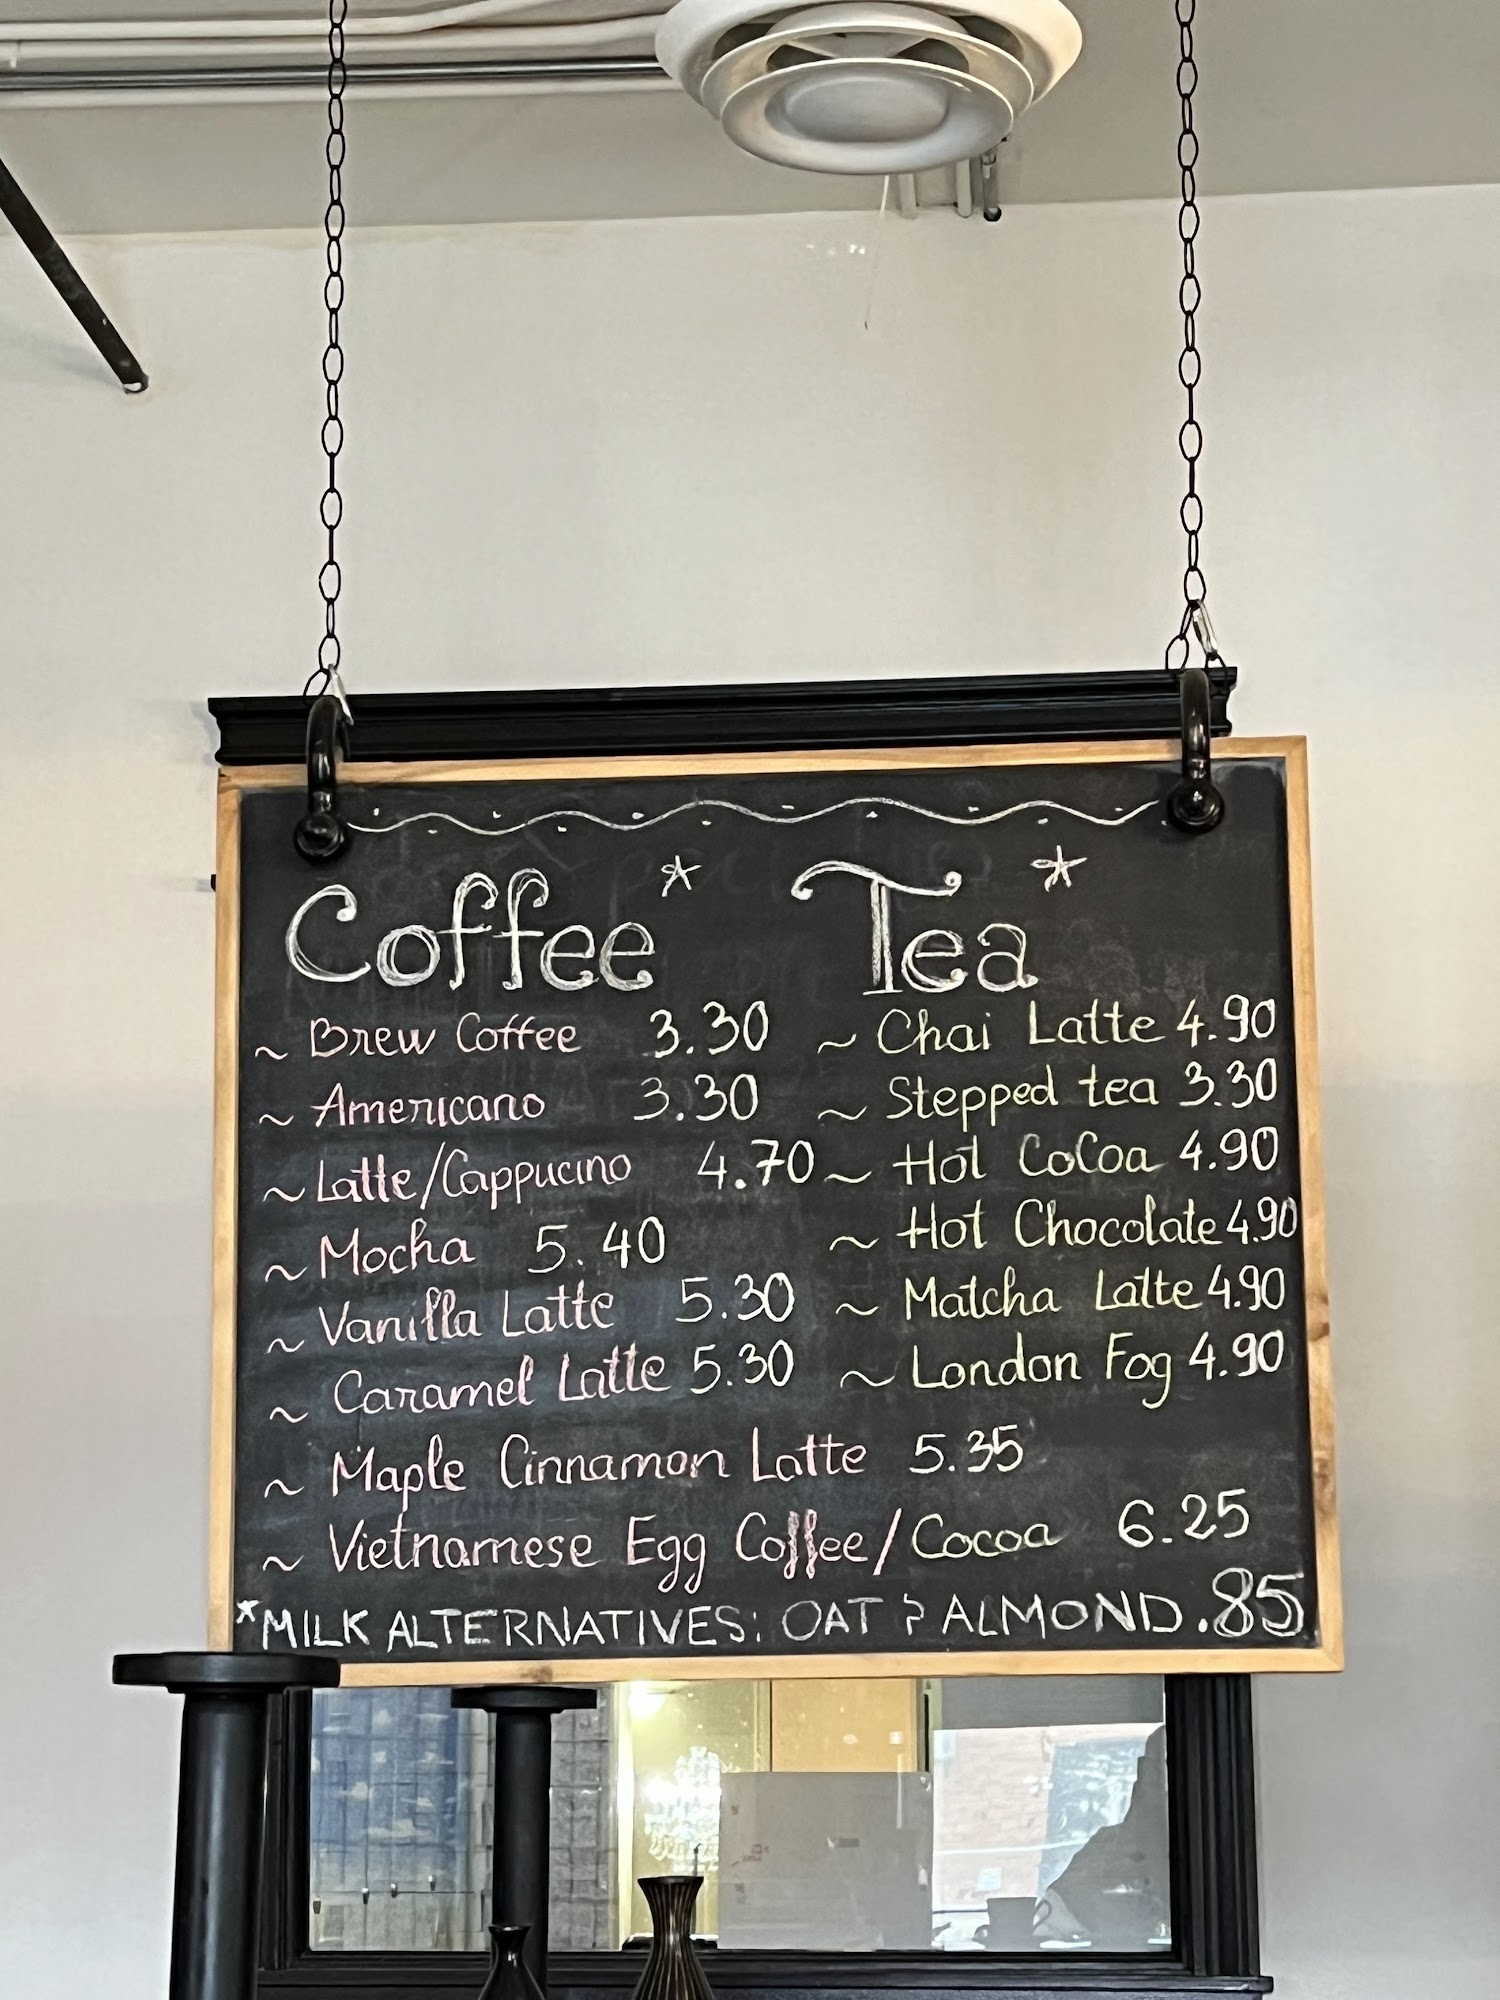 Coffee* Tea*
~ Brew Coffee 3.30
~ Americano 3.30
~ Latte/Cappucino 4.70
~ Mocha 5.40
~ Vanilla Latte 5.30
~ Caramel Latte 5.30
~ Chai Latte 4.90
~ Stepped tea 3.30
~ Hot CoCoa 4.90
~ Hot Chocolate 4.90
~ Matcha Latte 4.90
~ London Fog 4.90
~ Maple Cinnamon Latte 5.35
~ Vietnamese Egg Coffee/Cocoa 6.25
*MILK ALTERNATIVES: OAT & ALMOND .85